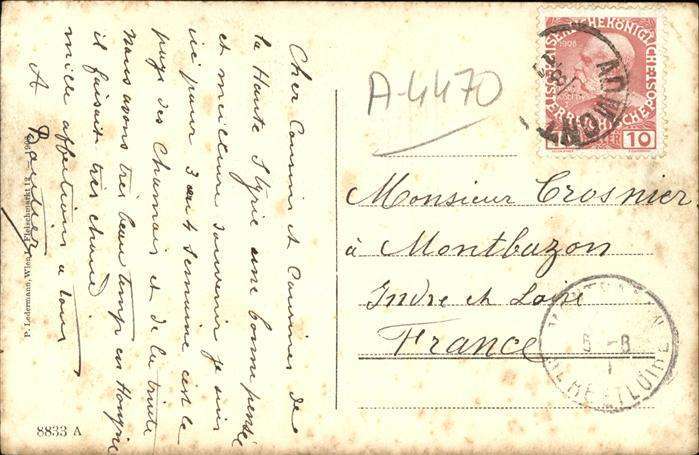 Cher Cousins et Cousines de
la Haute Styrie une bonne pensée
et meilleure souvenir je suis
ici pour 3 ou 4 semaines c'est le
pays des Chamois et de la truite
nous avons très beau temps en Hongrie
il faisait très chaud
mille affections à tous
A
P. Ledermann, Wien I., Fleischmarkt 12
8833 A
A-4470
KAISERLICHEKÖNIGLICHE
1908
10
ADMONT
Monsieur Crosnier
à Montbazon
Indre et Loire
France
MONTBAZON
5 -8
INDRE ET LOIRE